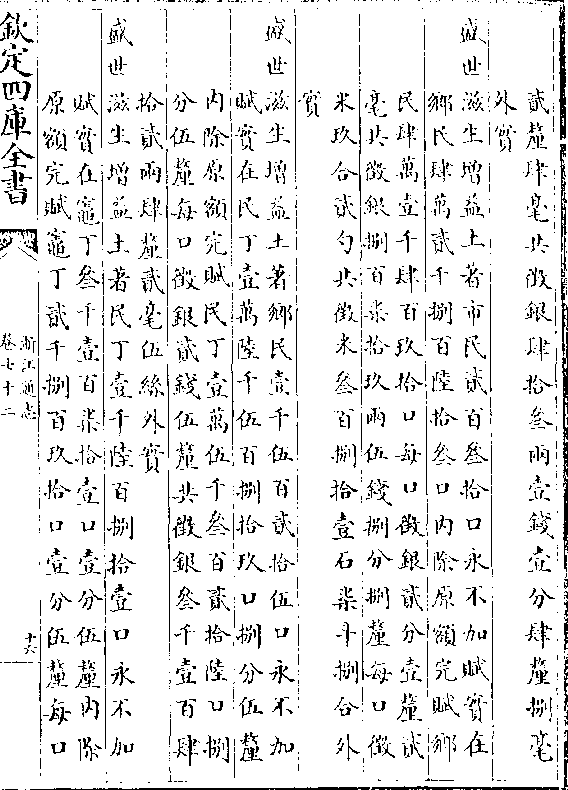 貳釐肆毫共徵銀肆拾叁兩壹錢壹分肆釐捌毫
外實
盛世滋生增益土著市民貳百叁拾口永不加賦實在
鄉民肆萬貳千捌百陸拾叁口內除原額完賦鄉
民肆萬壹千肆百玖拾口每口徵銀貳分壹釐貳
毫共徵銀捌百柒拾玖兩伍錢捌分捌釐每口徵
米玖合貳勺共徵米叁百捌拾壹石柒斗捌合外
實
盛世滋生增益土著鄉民壹千伍百貳拾伍口永不加
賦實在民丁壹萬陸千伍百捌拾玖口捌分伍釐
內除原額完賦民丁壹萬伍千叁百貳拾陸口捌
分伍釐每口徵銀貳錢伍釐共徵銀叁千壹百肆
拾貳兩肆釐貳毫伍絲外實
盛世滋生增益土著民丁壹千陸百捌拾壹口永不加
賦實在竈丁叁千壹百柒拾壹口壹分伍釐內除
原額完賦竈丁貳千捌百玖拾口壹分伍釐每口
欽定四庫全書
浙江通志
卷七十二
十六